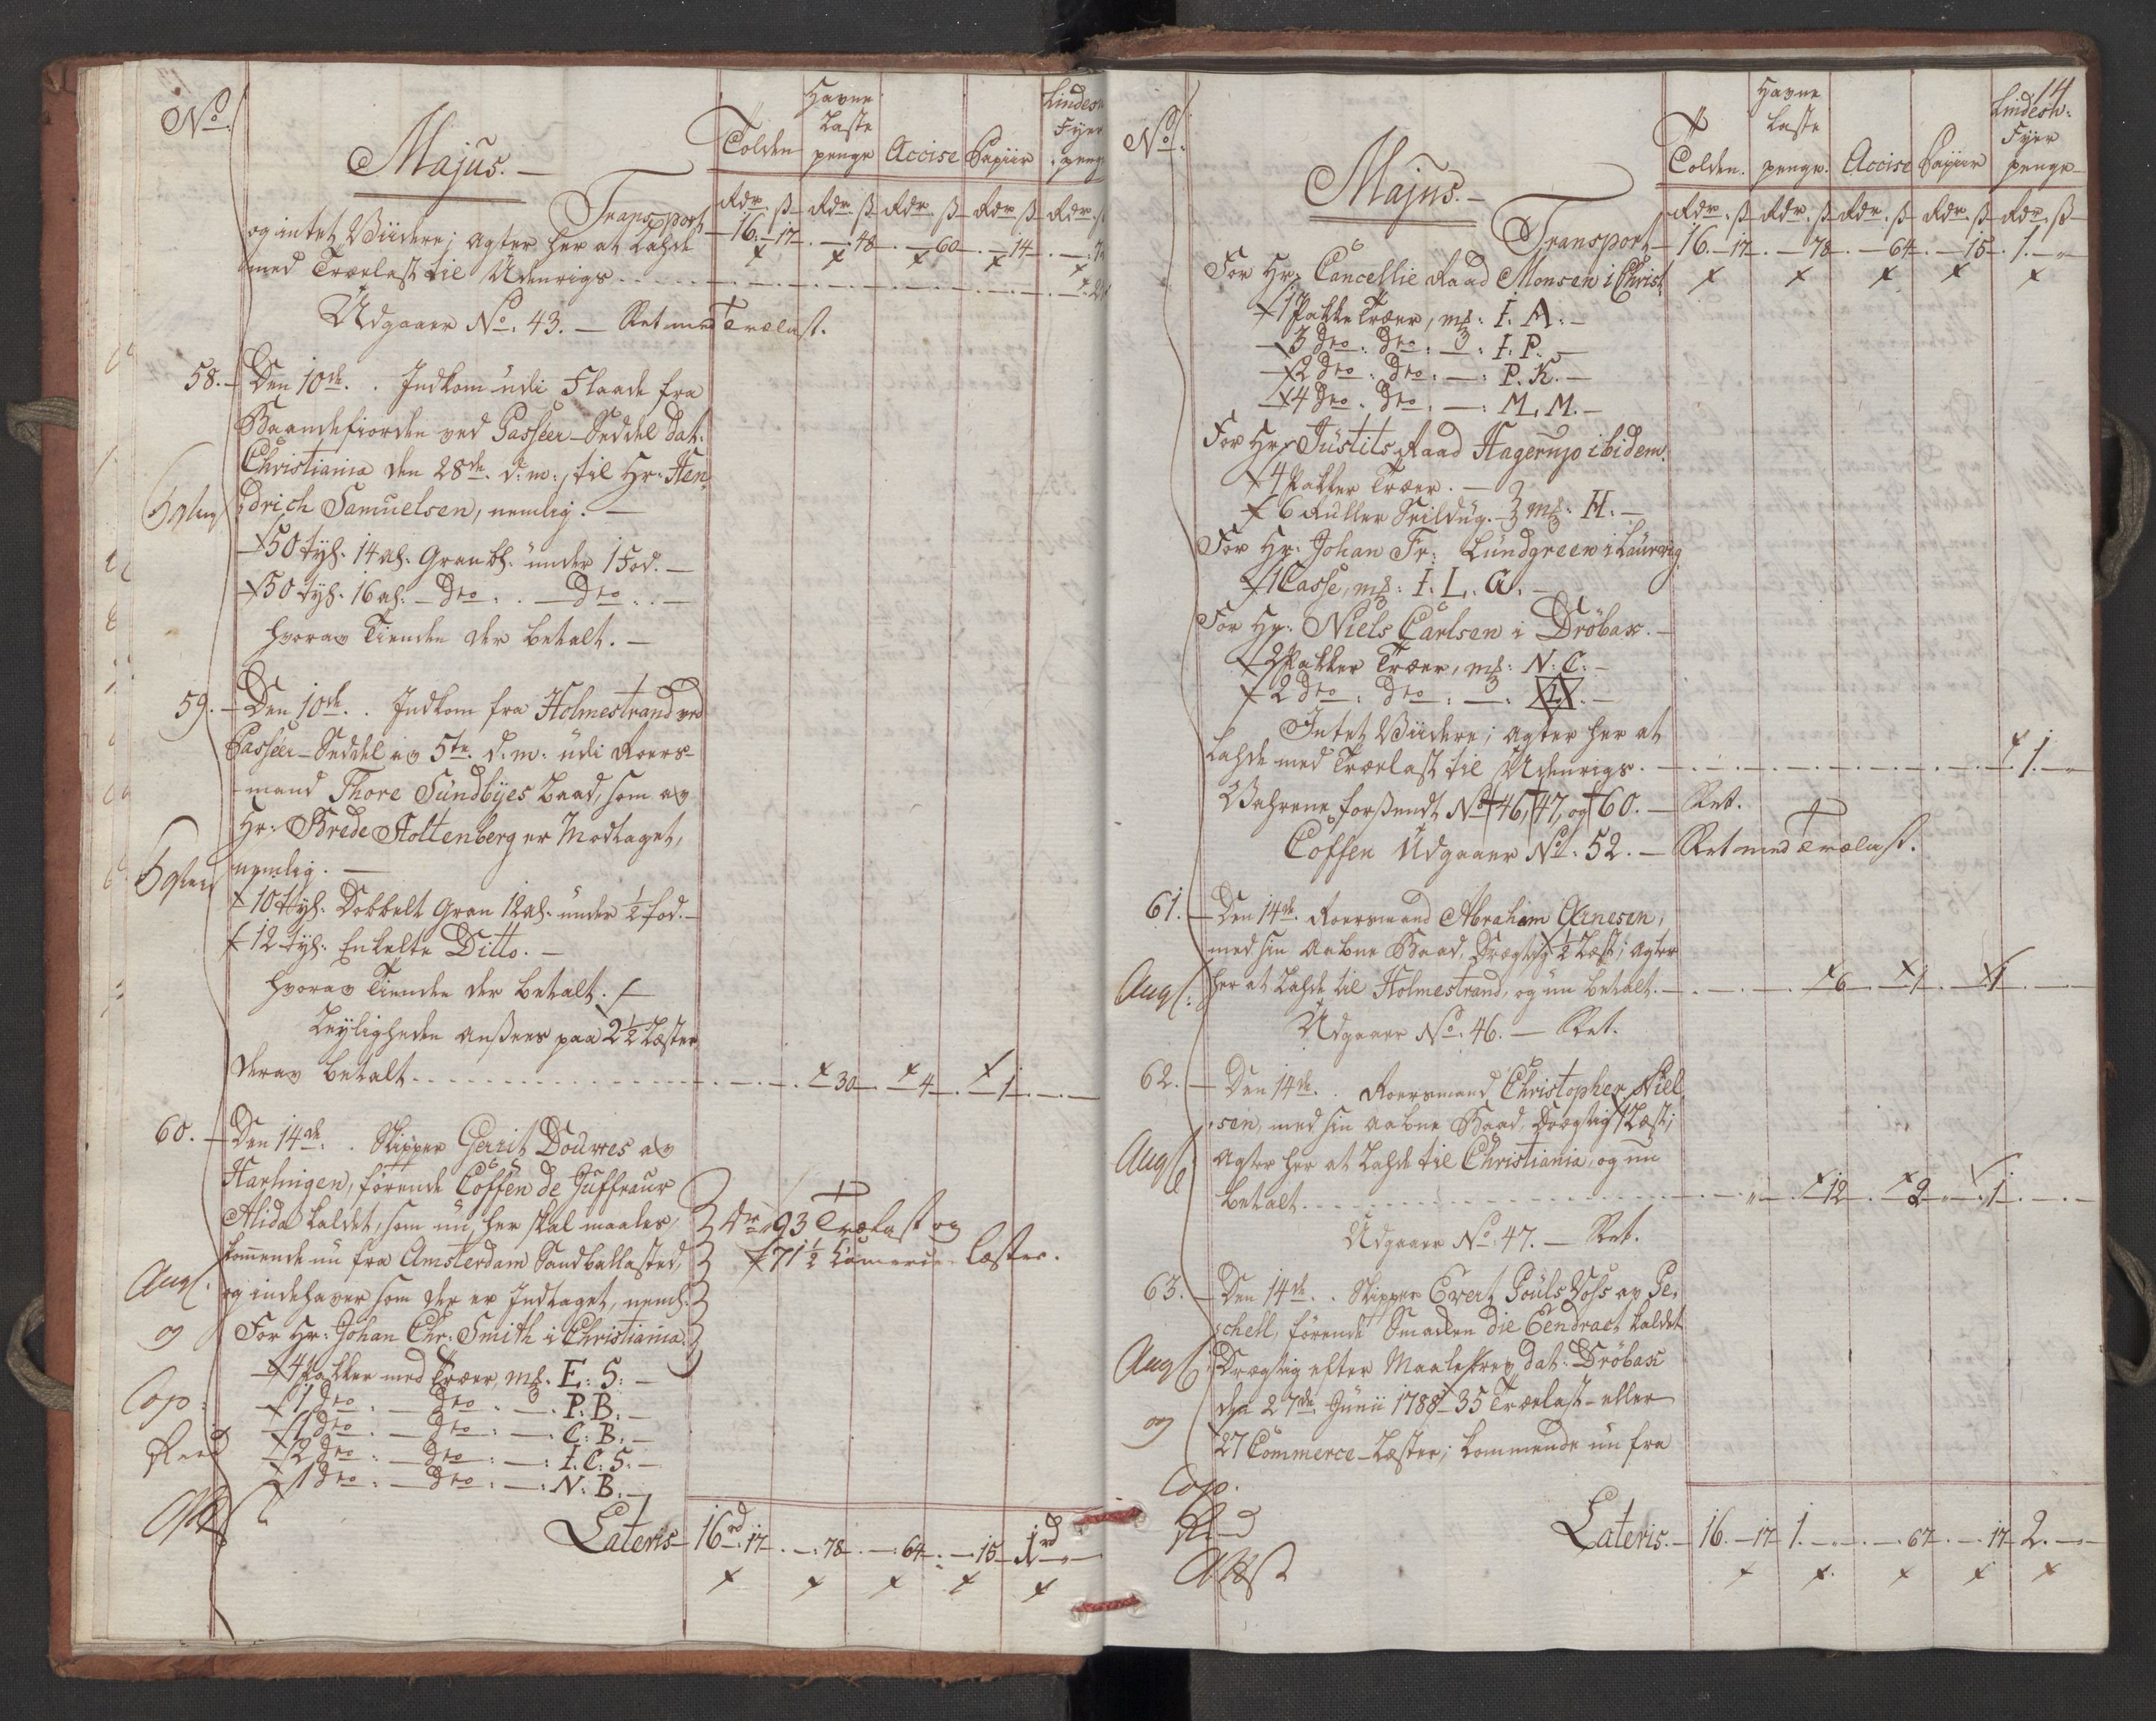 No.
Majus.
Tolden
Havne Laste penge
Accise
Papiir
Lindesn Fyer penge
Rdr. ß Rdr. ß Rdr. ß Rdr. ß Rdr. ß
Transport 16. 17. — 48. — 60. — 14. —
og intet Viidere; agter her at Lahde
med Trælast til Udenrigs
Udgaaer No. 43. — Ret med Trælast.
58. Den 10de. Indkom udi Flaade fra
Baandefiorden ved Passeer-Seddel dat.
Christiania den 28de. d. m., til Hr. Hen-
drich Samuelsen, nemlig. —
50 tyl. 14 al. Gran bl. under 1 Fod. —
50 tyl. 16 al. Dto. — Dto. —
hvorav Tienden der betalt. —
59. Den 10de. Indkom fra Holmestrand ved
Passeer-Seddel av 5te. d. m. udi Roers-
mand Thore Sundbyes Baad, som av
Hr. Brede Stoltenberg er Modtaget,
nemlig. —
10 tyl. Dobbelt Gran 12 al. under ½ fod. —
12 tyl. Enkelte Ditto. —
hvorav Tienden der betalt. —
Leyligheden ansees paa 2½ Læster
derav betalt — 30 — 4 — 1 —
60. Den 14de. Skipper Gerrit Douwes av
Harlingen, førende Coffen de Juffraur
Alida kaldet, som nu her skal maales, 93 Trælast og
kommende nu fra Amsterdam Sandballasted, 71½ Comerce læster.
Aug.
og indehaver som der er Indtaget, neml.
og
For Hr. Johan Chr. Smith i Christiania
4 Pakker med Træer, mk. E: S: —
Cop:
1 Dto: — Dto: — P: B. —
1 Dto: — Dto: — C: B. —
2 Dto: — Dto: — I. C: S. —
1 Dto: — Dto: — N: B. —
Lateris 16rd 17. — 78. — 64. — 15. 1rd —
14
No.
Majus.
Tolden.
Havne laste penge.
Accise
Papiir
Lindesn: Fyer penge
Rdr. ß Rdr. ß Rdr. ß Rdr. ß Rdr. ß
Transport 16. 17. — 78. — 64. — 15. 1. —
For Hr. Cancellie Raad Monsen i Christ.
1 Pakke Træer, mk: I. A: —
3 Dto. Dto: — : I. P. —
2 Dto: Dto: — : P. K. —
4 Dto. Dto. — : M. M. —
For Hr. Justits Raad Hagerup ibidem.
4 Pakker Træer. —
6 Ruller Seildug. mk: H. —
For Hr. Johan Fr: Lundgreen i Laurvig
1 Casse, mk: I. L. G. —
For Hr. Niels Carlsen i Drøbax. —
2 Pakker Træer, mk: N: C: —
2 Dto: Dto: —
Intet Viidere; agter her at
Lahde med Trælast til Udenrigs. — 1. —
Vahrene forsendt No. 46, 47, og 60. — Ret.
Coffen Udgaaer No. 52. — Ret med Trælast.
61. Den 14de. Roersmand Abraham Arnesen,
med sin aabne Baad, Drægtig ½ Læst; agter
Aug:
her at Lahde til Holmestrand, og nu betalt. — 6 — 1 — 1 —
Udgaaer No. 46. — Ret.
62. Den 14de. Roersmand Christopher Niel-
sen, med sin aabne Baad, Drægtig 1 Læst;
Aug:
agter her at Lahde til Christiania, og nu
betalt — 12 — 2 — 1 —
Udgaaer No. 47. — Ret.
63. Den 14de. Skipper Evert Pouls Vos av Pe-
schell, førende Smacken die Eendract kaldet
Aug:
Drægtig efter Maalebrev dat: Drøbax
den 27de. Junii 1788 35 Trælast- eller
og
27 Commerce-Læster; kommende nu fra
Cop.
Lateris. 16. 17 1. — 67. — 17 2. —